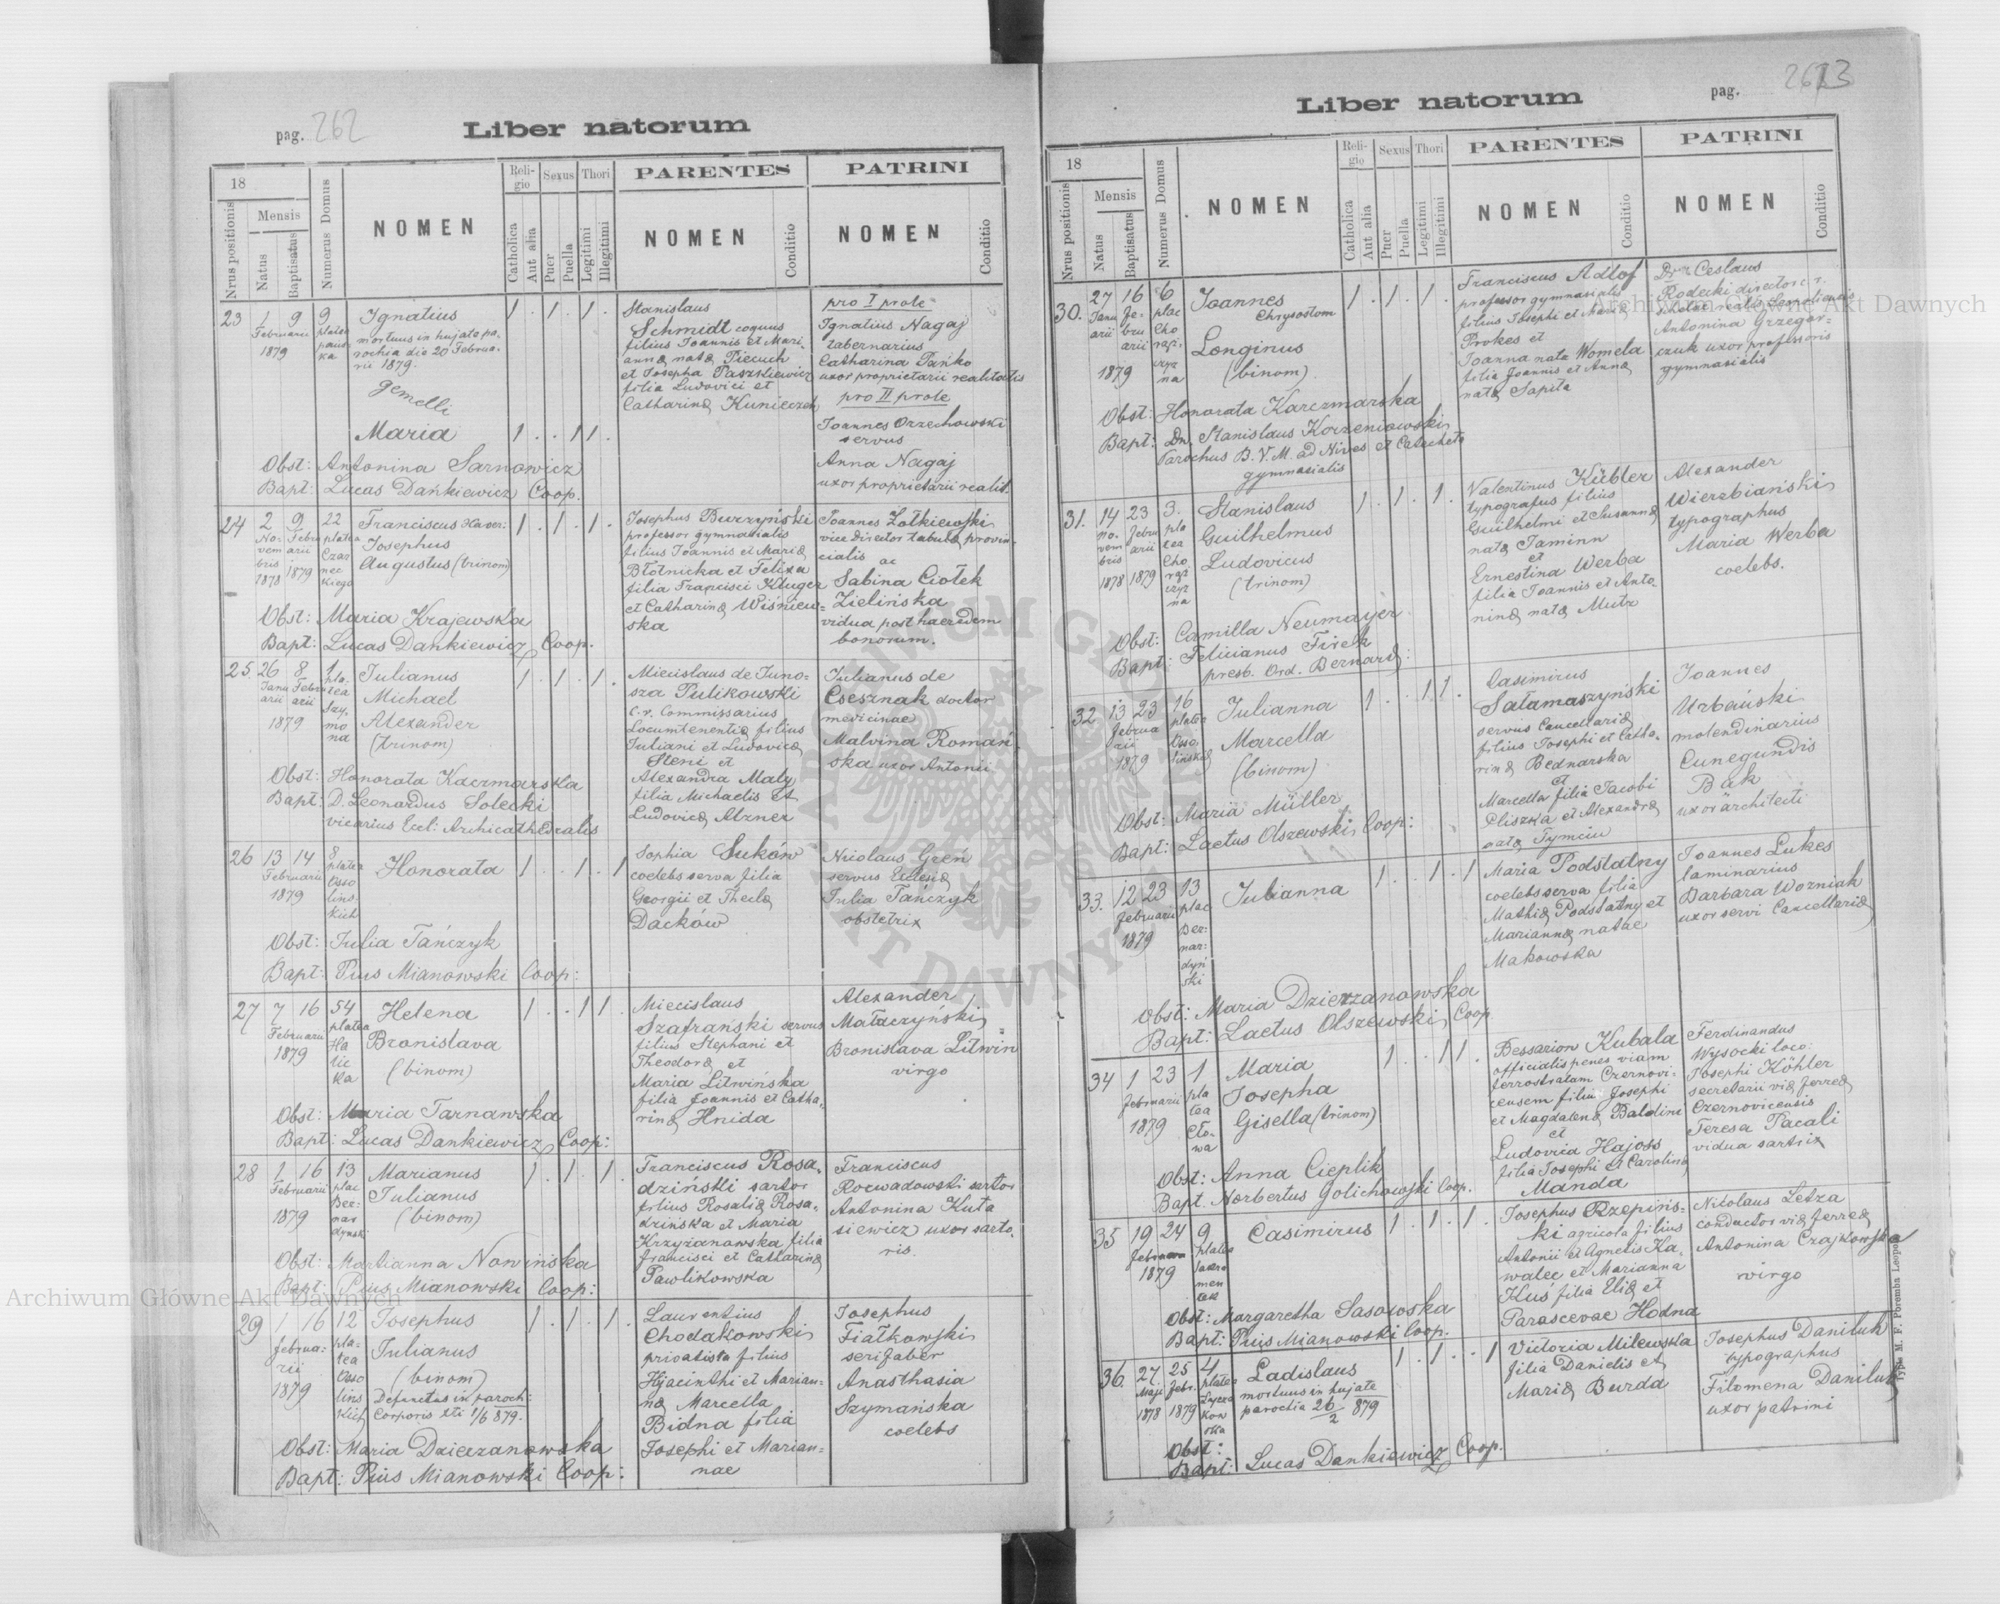 pag. 262
Liber natorum
18
Nrus positionis
Mensis
Natus
Baptisatus
Numerus Domus
NOMEN
Reli-
gio
Catholica
Aut alia
Sexus
Puer
Puella
Thori
Legitimi
Illegitimi
PARENTES
NOMEN
Conditio
PATRINI
NOMEN
Conditio
23 1 9 9
Februarii
1879
platea
Ignatius
mortuus in hujate pa-
rochia die 20 Februa-
rii 1879.
gemelli
Maria
1 . 1 . 1 .
1 . . 1 1 .
Stanislaus
Schmidt coquus
filius Joannis et Mari-
annæ natæ Piecuch
et Josepha Paszkiewicz
filia Ludovici et
Catharinæ Kunieczek
pro I prole
Ignatius Nagaj
tabernarius
Catharina Pańko
uxor proprietarii realitatis
pro II prole
Joannes Orzechowski
servus
Anna Nagaj
uxor proprietarii realit.
Obst: Antonina Sarnowicz
Bapt: Lucas Dańkiewicz Coop.
24 2 9 22
No-
vem
bris
1878
Febru
arii
1879
platea
Czar
nec
kiego
Franciscus Xaver:
Josephus
Augustus (trinom)
1 . 1 . 1 .
Josephus Burzyński
professor gymnasialis
filius Joannis et Mariæ
Błotnicka et Felixa
filia Francisci Kluger
et Catharinæ Wiśniew-
ska
Joannes Żołkiewski
vice director tabulæ provin-
cialis ac
Sabina Ciołek
Zielińska
vidua post haeredem
bonorum.
Obst: Maria Krajewska
Bapt: Lucas Dankiewicz Coop.
25 26 8 1
Janu
arii
Febru
arii
1879
pla-
tea
Szy-
mo
na
Julianus
Michael
Alexander
(trinom)
1 . 1 . 1 .
Miecislaus de Juno-
sza Pulikowski
c.r. Commissarius
Locumtenentiæ filius
Juliani et Ludovicæ
Steni et
Alexandra Maly
filia Michaelis et
Ludovicæ Atzner
Julianus de
Csesznak doctor
medicinae
Malvina Romań
ska uxor Antonii
Obst: Honorata Kaczmarska
Bapt: D. Leonardus Solecki
vicarius Eccl: Archicathedralis
26 13 14 8
Februarii
1879
platea
Osso
lins-
kich
Honorata
1 . . 1 . 1
Sophia Suków
coelebs serva filia
Georgii et Theclæ
Dacków
Nicolaus Greń
servus Eclesiæ
Julia Tańczyk
obstetrix
Obst: Julia Tańczyk
Bapt: Pius Mianowski Coop:
27 7 16 54
Februarii
1879
platea
Ha
lic
ka
Helena
Bronislava
(binom)
1 . . 1 1 .
Miecislaus
Szafrański servus
filius Stephani et
Theodoræ et
Maria Litwińska
filia Joannis et Catha-
rinæ Hnida
Alexander
Małaczyński
Bronislava Litwin
virgo
Obst: Maria Tarnawska
Bapt: Lucas Dankiewicz Coop:
28 1 16 13
Februarii
1879
plac
Ber-
nar
dynski
Marianus
Julianus
(binom)
1 . 1 . 1 .
Franciscus Rosa-
dziński sartor
filius Rosaliæ Rosa-
dzińska et Maria
Krzyżanowska filia
Francisci et Catharinæ
Pawlikowska
Franciscus
Rozwadowski sartor
Antonina Kuta
siewicz uxor sarto-
ris.
Obst: Marianna Nowińska
Bapt: Pius Mianowski Coop:
29 1 16 12
februa-
rii
1879
pla-
tea
Osso
lins
kich
Josephus
Julianus
(binom)
Defunctus in paroch:
Corporis Xti 1/6 879.
1 . 1 . 1 .
Laurentius
Chodakowski
privatista filius
Hyacinthi et Marian-
næ Marcella
Bidna filia
Josephi et Marian-
nae
Josephus
Fiałkowski
serifaber
Anasthasia
Szymańska
coelebs
Obst: Maria Dzierzanowska
Bapt: Pius Mianowski Coop:
Liber natorum
pag. 263
18
Nrus positionis
Mensis
Natus
Baptisatus
Numerus Domus
NOMEN
Reli-
gio
Catholica
Aut alia
Sexus
Puer
Puella
Thori
Legitimi
Illegitimi
PARENTES
NOMEN
Conditio
PATRINI
NOMEN
Conditio
30. 27 16 6
Janu
arii
Fe-
bru
arii
1879
plac
Cho
rąż-
czyz
na
Joannes
Chrysostom
Longinus
(binom)
1 . 1 . 1 .
Franciscus Adlof
professor gymnasialis
filius Josephi et Mariæ
Prokes et
Joanna nata Womela
filia Joannis et Annæ
natæ Sapita
Ceslaus
Rodecki director
scholae realis Leopoliensis
Antonina Grzegor-
czuk uxor professoris
gymnasialis
Obst: Honorata Karczmarska
Bapt: Dn. Stanislaus Korzeniowski
Parochus B.V.M. ad Nives et Catecheta
gymnasialis
31. 14 23 3.
no-
vem
bris
1878
Febru
arii
1879
pla
tea
Cho
rąż
czyz
na
Stanislaus
Guilhelmus
Ludovicus
(trinom)
1 . 1 . 1 .
Valentinus Kübler
typografus filius
Guilhelmi et Susannæ
natæ Jaminn
et
Ernestina Werba
filia Joannis et Anto-
ninæ natæ Mutz
Alexander
Wierzbiański
typographus
Maria Werba
coelebs.
Obst: Camilla Neumayer
Bapt: Felicianus Firek
presb. Ord. Bernard:
32 13 23 16
februa
rii
1879
platea
Osso
lińskich
Julianna
Marcella
(binom)
1 . . 1 1 .
Casimirus
Sałamaszyński
servus Cancellariæ
filius Josephi et Catha-
rinæ Bednarska
et
Marcella filia Jacobi
Pliszka et Alexandræ
natæ Tymciu
Joannes
Urbański
molendinarius
Cunegundis
Bąk
uxor architecti
Obst: Maria Müller
Bapt: Laetus Olszewski Coop:
33. 12 23 13
februarii
1879
plac
Ber-
nar-
dyń
ski
Julianna
1 . . 1 . 1
Maria Podstatny
coelebs serva filia
Mathiæ Podstatny et
Mariannæ natae
Makowska
Joannes Lukes
laminarius
Barbara Wozniak
uxor servi Cancellariæ
Obst: Maria Dzierzanowska
Bapt: Laetus Olszewski Coop
34 1 23 1
februarii
1879
pla
tea
Cło-
wa
Maria
Josepha
Gisella (trinom)
1 . . 1 1 .
Bessarion Kubala
officialis penes viam
ferrostratam Czernovi-
censem filius Josephi
et Magdalenæ Baldini
et
Ludovica Hajoss
filia Josephi et Carolinæ
Manda
Ferdinandus
Wysocki loco:
Josephi Köhler
secretarii viæ ferreæ
Czernovicensis
Teresa Pacali
vidua sartrix
Obst: Anna Cieplik
Bapt. Norbertus Golichowski Coop.
35 19 24 9
februarii
1879
platea
sacra
men
tek
Casimirus
1 . 1 . 1 .
Josephus Rzepińs-
ki agricola filius
Antonii et Agnetis Ka-
walec et Marianna
Kuś filia Eliæ et
Parascevae Hodna
Nicolaus Letza
conductor viæ ferreæ
Antonina Czajkowska
virgo
Obst: Margaretha Sasowska
Bapt: Pius Mianowski Coop.
36. 27. 25 4
Maji
1878
Febr.
1879
platea
Łycza
kow
ska
Ladislaus
mortuus in hujate
parochia 26/2 879
1 . 1 . . 1
Victoria Milewska
filia Danielis et
Mariæ Burda
Josephus Daniluk
typographus
Filomena Daniluk
uxor patrini
Obst:
Bapt: Lucas Dankiewicz Coop.
Typis M. F. Poremba Leopol.
Archiwum Główne Akt Dawnych
Archiwum Główne Akt Dawnych